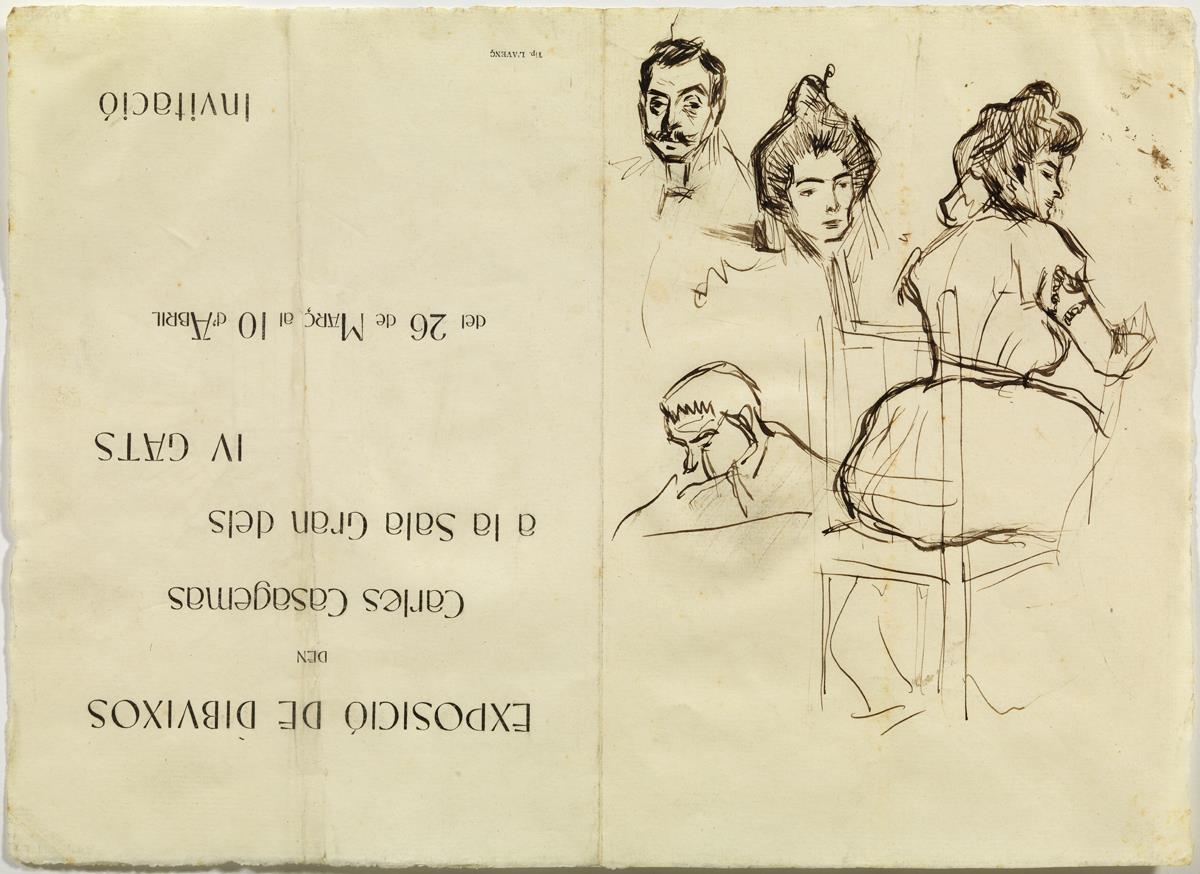 EXPOSICIÓ DE DIBVIXOS
DEN
Carles Casagemas
a la Sala Gran dels
IV GATS
del 26 de MARÇ al 10 d'ABRIL
Invitació
Tip. L'AVENÇ